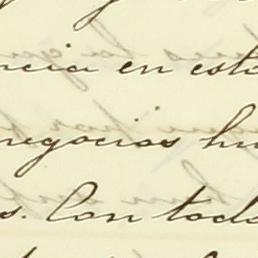 ncia en esta
negocios hu
s. Con toda